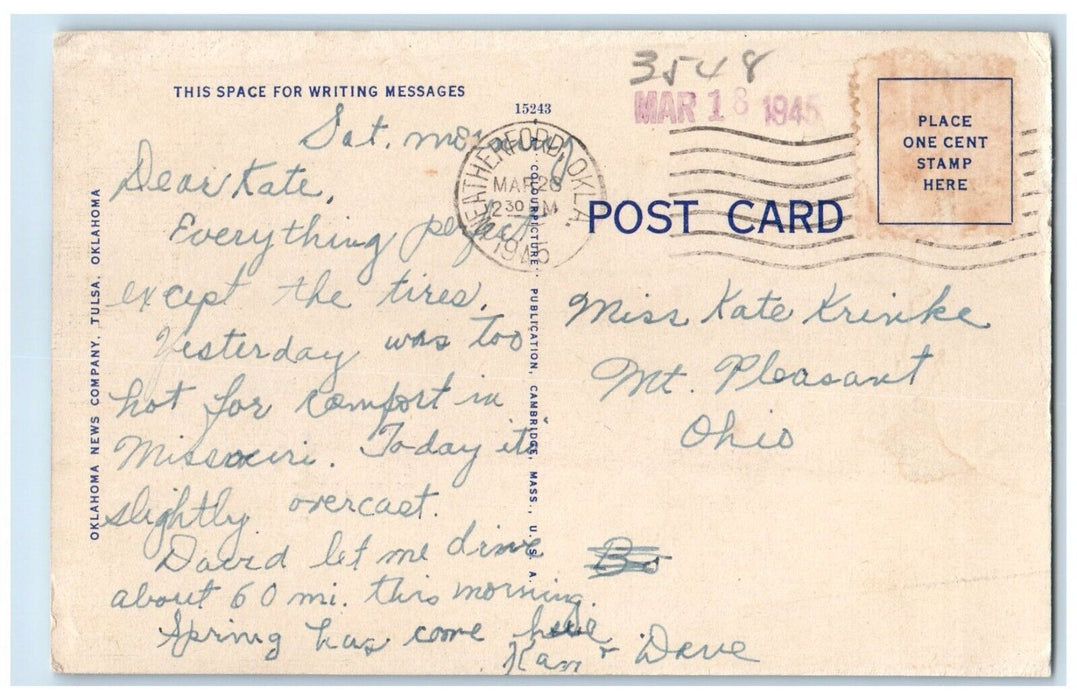 THIS SPACE FOR WRITING MESSAGES
15243
3548
MAR 18 1945
WEATHERFORD, OKLA.
MAR 2
1230 PM
1945
PLACE
ONE CENT
STAMP
HERE
POST CARD
OKLAHOMA NEWS COMPANY, TULSA, OKLAHOMA
COLOURPICTURE PUBLICATION, CAMBRIDGE, MASS., U. S. A.
Sat.
Dear Kate,
Everything perfect
except the tires.
Yesterday was too
hot for comfort in
Missouri. Today it's
slightly overcast.
David let me drive
about 60 mi. this morning.
Spring has come here
Kay + Dave
Miss Kate Krinke
Mt. Pleasant
Ohio